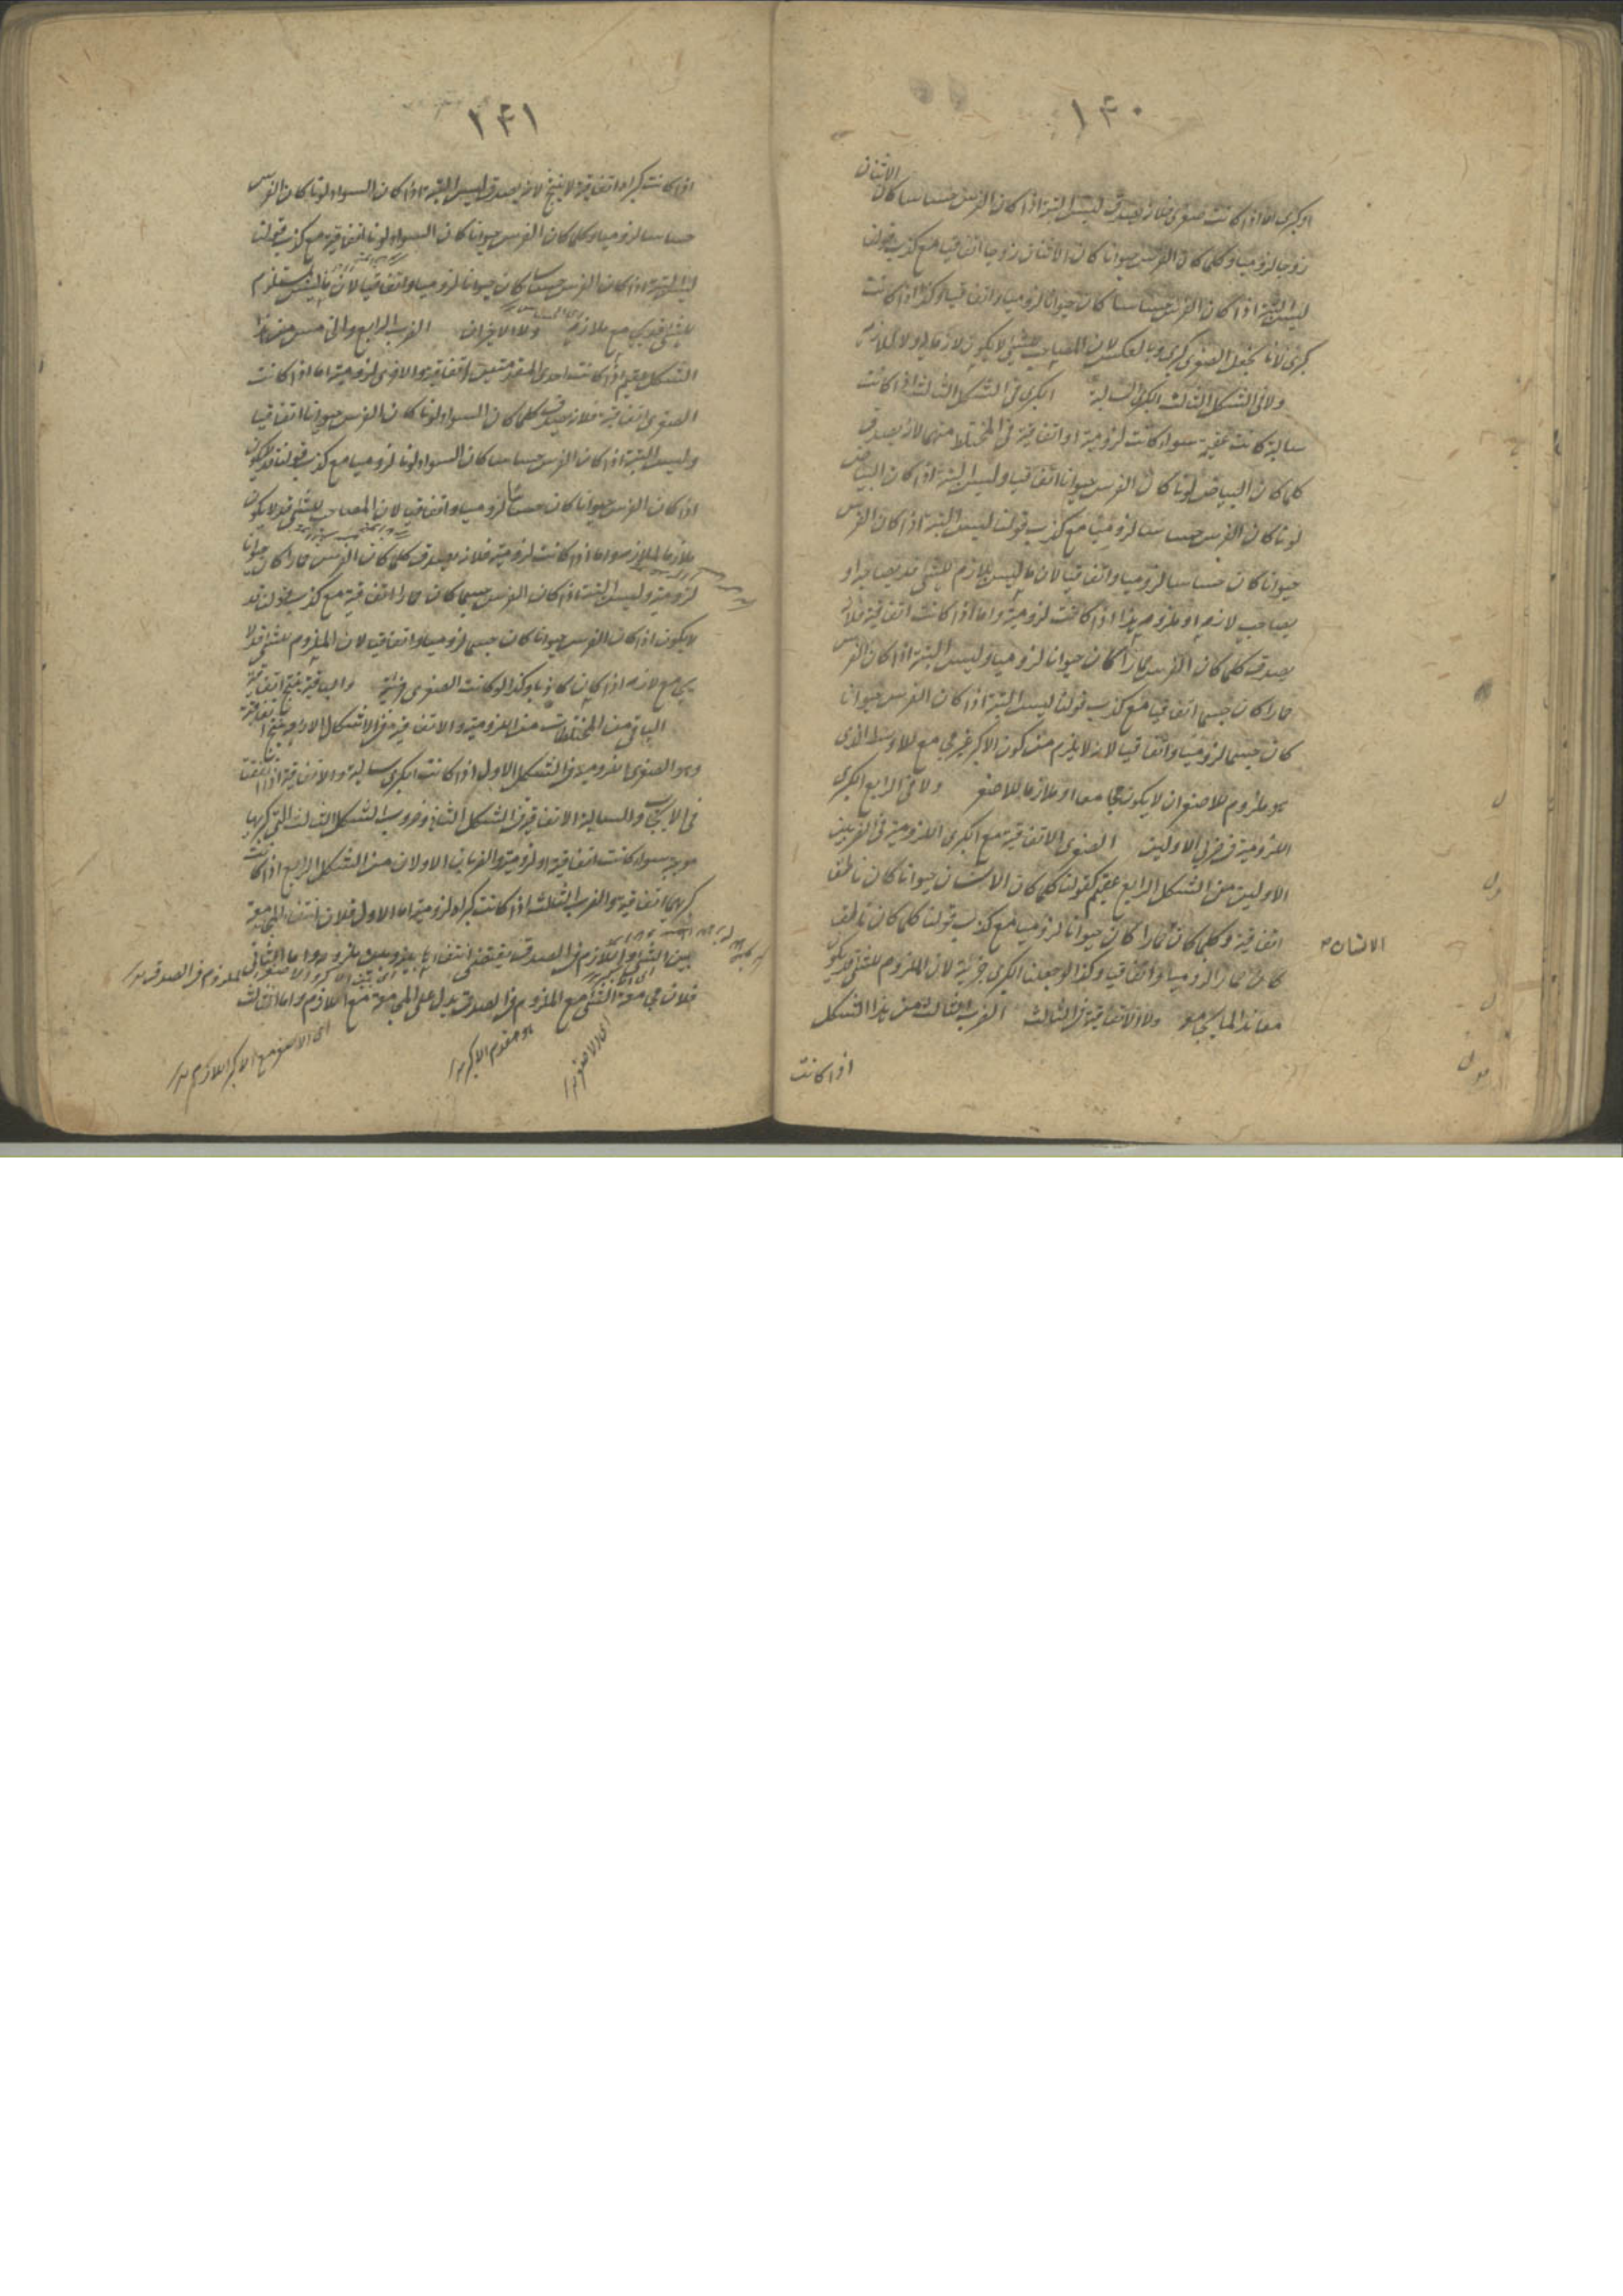 ١٤٠
او كبرى اما اذا كانت صغرى فلانه يصدق ليس البتة اذا كان الفرس حساسا كان الاثنان
زوجا لزوميا وكلما كان الفرس حيوانا كان الاثنان زوجا اتفاقيا مع كذب قولنا
ليس البتة اذا كان الفرس حساسا كان حيوانا لزوميا واتفاقيا وكذا اذا كانت
كبرى لانا نجعل الصغرى كبرى وبالعكس لان المصاحب للشئ لا يكون لازما له ولا لملازمه
ولا فى الشكل الثالث الكبرى السالبة الكبرى فى الشكل الثالث اذا كانت
سالبة كانت عقيمة سواء كانت لزومية او اتفاقية فى المختلط منهما لانه يصدق
كلما كان البياض لونا كان الفرس حيوانا اتفاقيا وليس البتة اذا كان البياض
لونا كان الفرس حساسا لزوميا مع كذب قولنا ليس البتة اذا كان الفرس
حيوانا كان حساسا لزوميا واتفاقيا لان ما ليس بلازم للشئ قد يصاحبه او
يصاحب لازمه او ملزومه هذا اذا كانت لزومية واما اذا كانت اتفاقية فلانه
يصدق كلما كان الفرس حمارا كان حيوانا لزوميا وليس البتة اذا كان الفرس
حمارا كان جسما اتفاقيا مع كذب قولنا ليس البتة اذا كان الفرس حيوانا
كان جسما لزوميا واتفاقيا لانه لا يلزم من كون الاكبر غير مجامع للاوسط الذى
هو ملزوم للاصغر ان لا يكون مجامعا او ملازما للاصغر ولا فى الرابع الكبرى
اللزومية فى ضربى الاولين الصغرى الاتفاقية مع الكبرى اللزومية فى الضربين
الاولين من الشكل الرابع عقيم كقولنا كلما كان الانسان حيوانا كان ناطقا
اتفاقية وكلما كان حمارا كان حيوانا لزوميا مع كذب قولنا كلما كان ناطقا
الانسان
كان حمارا لزوميا واتفاقيا وكذا لو جعلنا الكبرى جزئية لان الملزوم للشئ قد يكون
معاندا لما يجامعه ولا الاتفاقية فى الثالث الضرب الثالث من هذا الشكل
اذا كانت
١٤١
اذا كانت كبراه اتفاقية لا ينتج لانه يصدق ليس البتة اذا كان السواد لونا كان الفرس
حساسا لزوميا وكلما كان الفرس حيوانا كان السواد لونا اتفاقية مع كذب قولنا
ليس البتة اذا كان الفرس حساسا كان حيوانا لزوميا واتفاقيا لان ما ليس بمستلزم
للشئ قد يكون مع ملازمه ولا الاخيران الضرب الرابع والخامس من هذا
الشكل عقيم اذا كانت احدى المقدمتين اتفاقية والاخرى لزومية اما اذا كانت
الصغرى اتفاقية فلانه يصدق كلما كان السواد لونا كان الفرس حيوانا اتفاقيا
وليس البتة اذا كان الفرس حساسا كان السواد لونا لزوميا مع كذب قولنا قد لا يكون
اذا كان الفرس حيوانا كان حساسا لزوميا واتفاقيا لان المصاحب للشئ قد لا يكون
ملازما لملازمه واما اذا كانت لزومية فلانه يصدق كلما كان الفرس حمارا كان حيوانا
لزومية وليس البتة اذا كان الفرس جسما كان حمارا اتفاقية مع كذب قولنا قد
لا يكون اذا كان الفرس حيوانا كان جسما لزوميا واتفاقيا لان الملزوم للشئ قد لا
يجامع لازمه اذا كان كاذبا وكذا لو كانت الصغرى جزئية والباقية ينتج اتفاقية
الباقى من المختلطات من اللزومية والاتفاقية فى الاشكال الاربعة ينتج اتفاقية
وهو الصغرى اللزومية فى الشكل الاول اذا كانت الكبرى سالبة والاتفاقية اذا اتفقتا
فى الايجاب والسالبة الاتفاقية فى الشكل الثانى وضروب الشكل الثالث التى كبراها
موجبة سواء كانت اتفاقية او لزومية والضربان الاولان من الشكل الرابع اذا كانت
كبراهما اتفاقية والضرب الثالث اذا كانت كبراه لزومية اما الاول فلان انتفاء المجامعة
بين الشئ واللازم فى الصدق يقتضى انتفاءها بينه وبين ملزومه واما الثانى
فلان مجامعة الشئ مع الملزوم فى الصدق يدل على المجامعة مع اللازم واما الثالث
اى الاصغر مع الاكبر اللازم